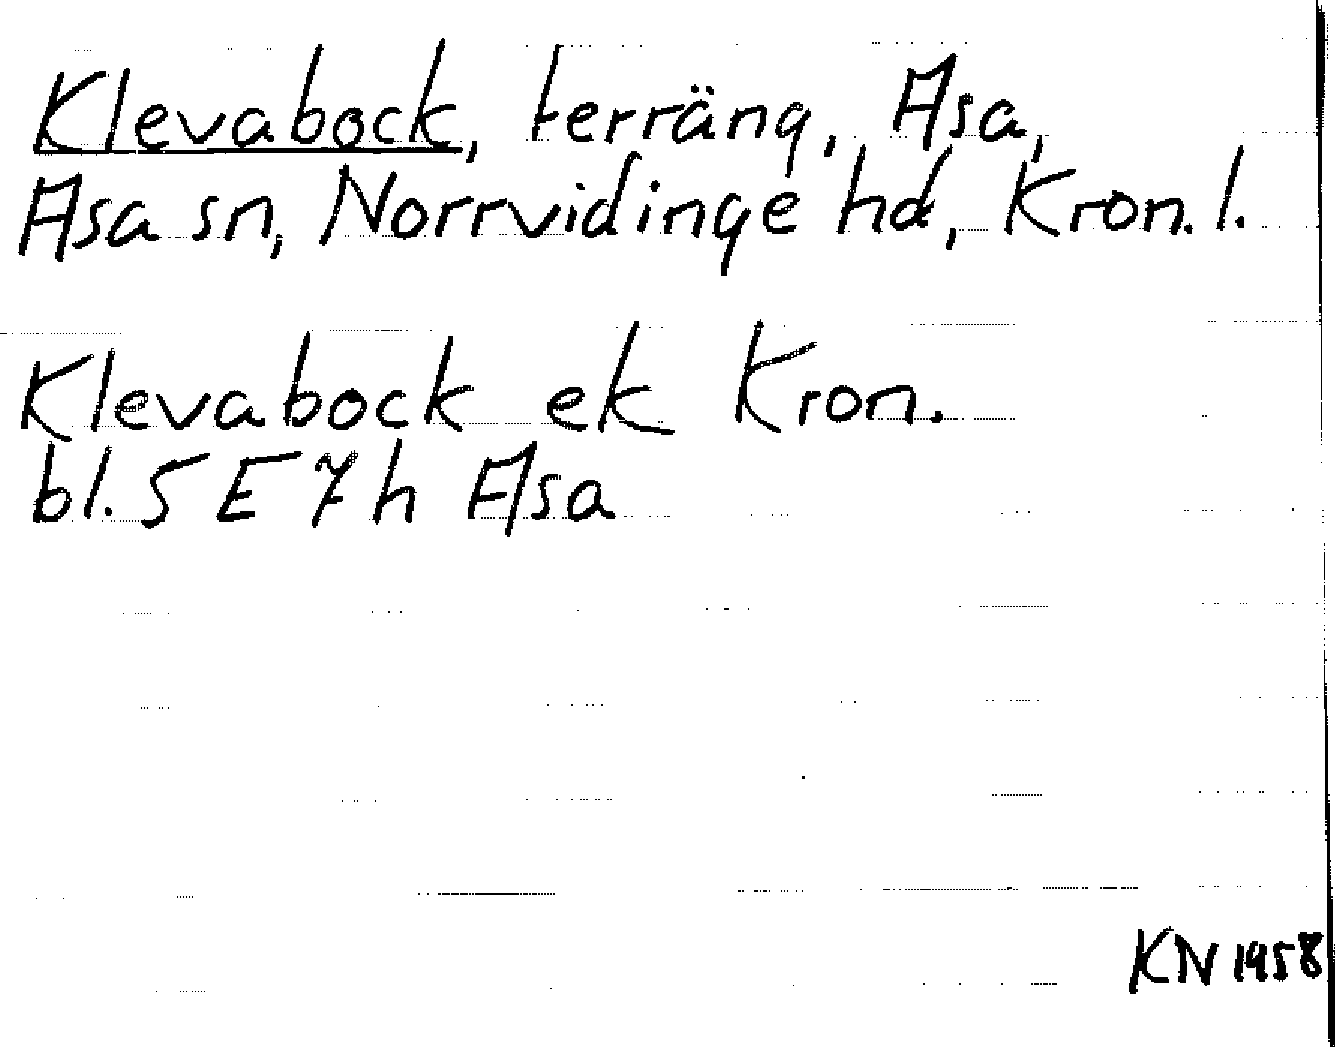 Klevabock, terräng, Asa,
Asa sn, Norrvidinge hd, Kron. l.
Klevabock ek Kron.
bl. 5 E 7 h Asa
KN 1958